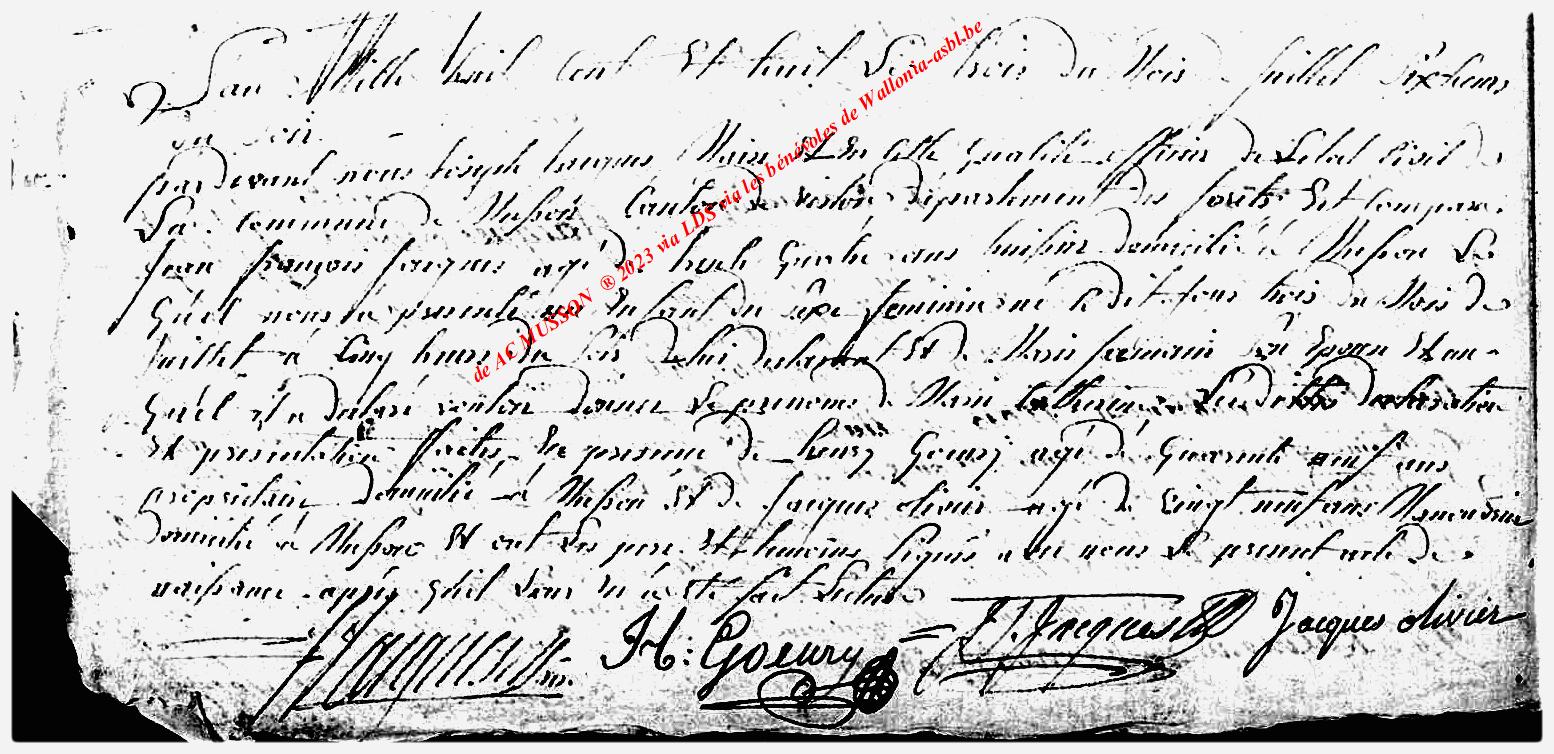 L'an Mille huit Cent Et huit Le trois du Mois de Juillet Six heures
du Soir.
pardevant nous Joseph Jacques Maire Et En cette qualité officier de Letat Civil de
La Commune de Musson Canton de virton département des forêts Est Comparu
Jean françois Jacques agé de trente quatre ans huissier domicilié à Musson Le
quel nous a presenté un Enfant du sexe feminin né Ledit jour trois du Mois de
Juillet à Cinq heures du Soir De lui declarant Et de Marie Son Epouse Et au-
quel il a declaré vouloir donner Le prenoms de Marie Catherine, Lesdittes declaration
Et presentation faites En presence de henry Goeury agé de quarante neuf ans
proprietaire domicilié à Musson Et de Jacques olivier agé de vingt neuf ans Manouvrier
domicilié à Musson Et ont Les pere Et temoins Signés avec nous Le present acte de
naissance apprés qu'il Leur En a été fait Lecture
Jacques H: Goeury J f Jacques Jacques olivier
de AC MUSSON ® 2023 via LDS via les bénévoles de Wallonia-asbl.be